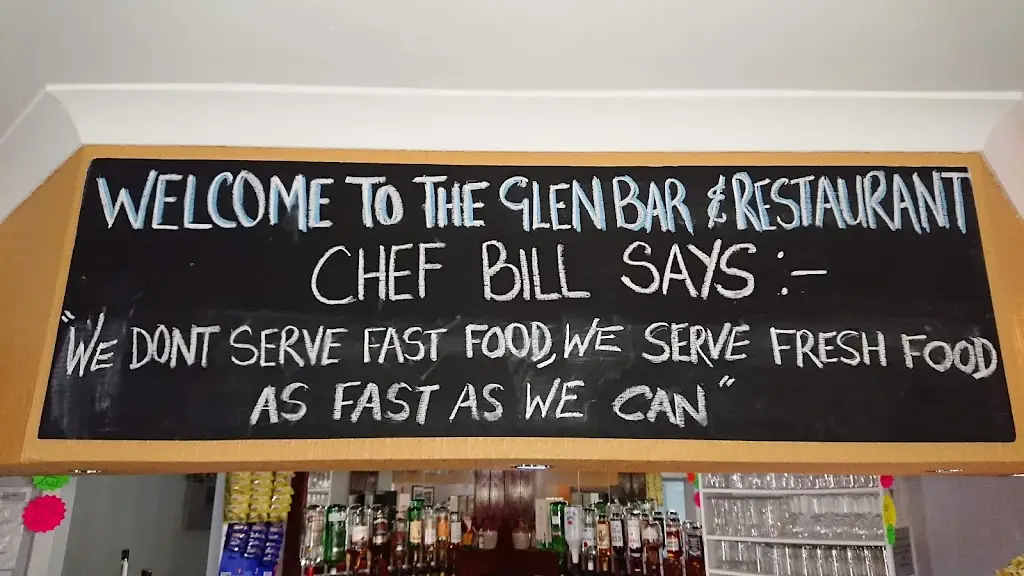 WELCOME TO THE GLEN BAR & RESTAURANT
CHEF BILL SAYS :-
"WE DONT SERVE FAST FOOD, WE SERVE FRESH FOOD
AS FAST AS WE CAN"